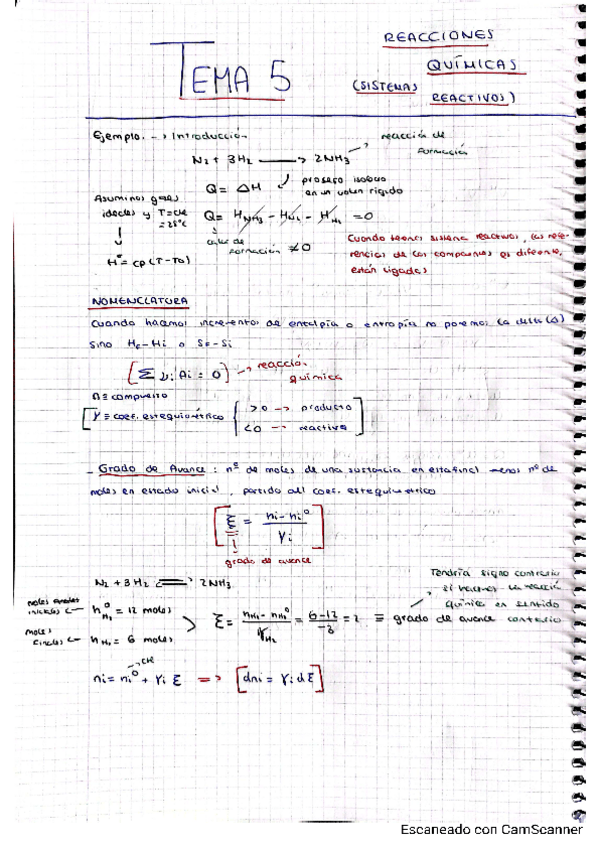 TEMA 5
REACCIONES
QUÍMICAS
(SISTEMAS
REACTIVOS)
Ejemplo: --> Introducción
N₂ + 3H₂ ⟶ 2NH₃ -> reacción de
formación
Q = ΔH
proceso isobaro
en un volum rigido
Asumimos gases
ideales y T=cte
= 25°C
Q = H_NH₃ - H_N₂ - H_H₂ = 0
calor de
formación ≠ 0
H* = cp (T-T0)
Cuando tenemos sistema reactivos, las refe-
rencias de los compuestos es diferente,
están ligadas
NOMENCLATURA
Cuando hacemos incrementos de entalpía o entropía no ponemos la delta (Δ)
sino Hf-Hi o Sf-Si
[Σ νi Ai = 0] -> reacción
química
A ≡ compuesto
γ ≡ coef. estequiométrico { >0 --> producto
<0 --> reactivo
- Grado de Avance: nº de moles de una sustancia en estado final menos nº de
moles en estado inicial, partido del coef. estequiométrico
[ξ = (ni - ni⁰)/γi]
grado de avance
N₂ + 3H₂ ⇌ 2NH₃
moles
iniciales <- n⁰_H₂ = 12 moles
moles
finales <- n_H₂ = 6 moles
ξ = (n_H₂ - n_H₂⁰)/γ_H₂ = (6-12)/-3 = 2 ≡ grado de avance
Tendría signo contrario
si hacemos la reacción
química en sentido
contrario
ni = ni⁰ + γi ξ => [dni = γi dξ]
cte
Escaneado con CamScanner